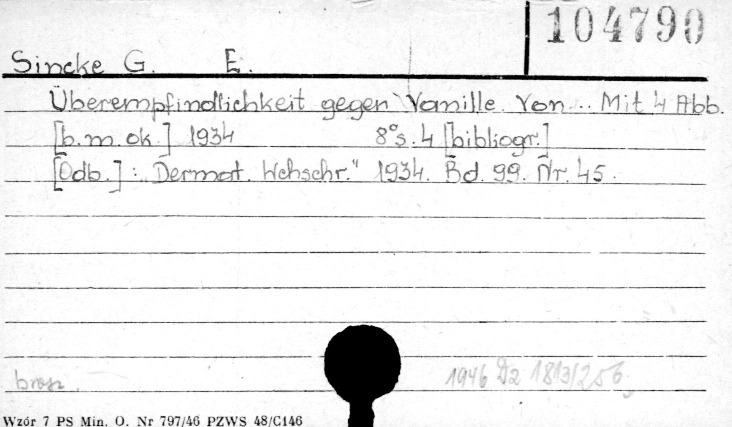 104790
Sincke G. E.
Überempfindlichkeit gegen Vanille. Von... Mit 4 Abb.
[b.m.ok.] 1934 8° s. 4 [bibliogr.]
[Odb.]: „Dermat. Wchschr." 1934. Bd. 99. Nr. 45.
brosz.
1946 Dz 1813/256
Wzór 7 PS Min. O. Nr 797/46 PZWS 48/C146